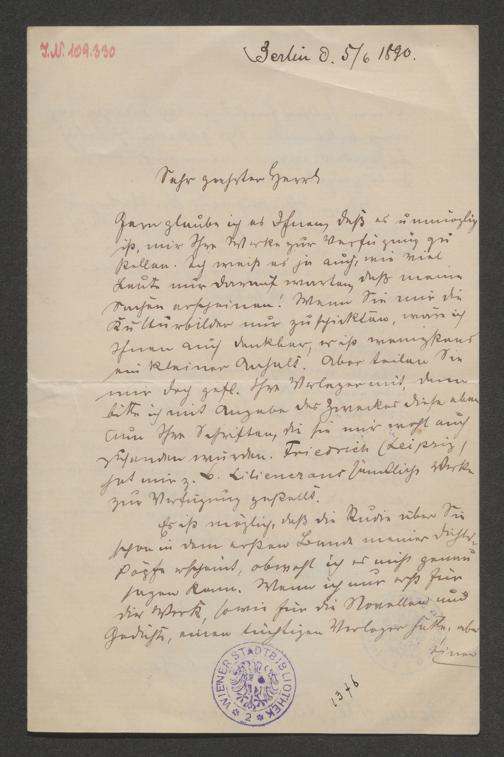 I.N. 109.330
Berlin d. 5/6 1890.
Sehr geehrter Herr!
Gern glaube ich es Ihnen, daß es unmöglich
ist, mir Ihre Werke zur Verfügung zu
stellen. Ich weiß es ja auch, wie viel
Leute nur darauf warten, daß meine
Sachen erscheinen! Wenn Sie mir die
Kulturbilder nur zuschickten, wäre ich
Ihnen auch dankbar, es ist wenigstens
ein kleiner Anhalt. Aber teilen Sie
mir doch gefl. Ihre Verleger mit, dann
bitte ich mit Angabe des Zweckes diese eben
um Ihre Schriften, die sie mir wohl auch
zusenden würden. Friedrich (Leipzig)
hat mir z. B. Liliencrons sämtliche Werke
zur Verfügung gestellt.
Es ist möglich, daß die Studie über Sie
schon in dem ersten Bande meiner Dichter-
köpfe erscheint, obwohl ich es nicht genau
sagen kann. Wenn ich nur erst für
die Werk, sowie für die Novellen und
Gedichte, einen tüchtigen Verleger hätte, aber
einen
WIENER STADTBIBLIOTHEK
2
1376